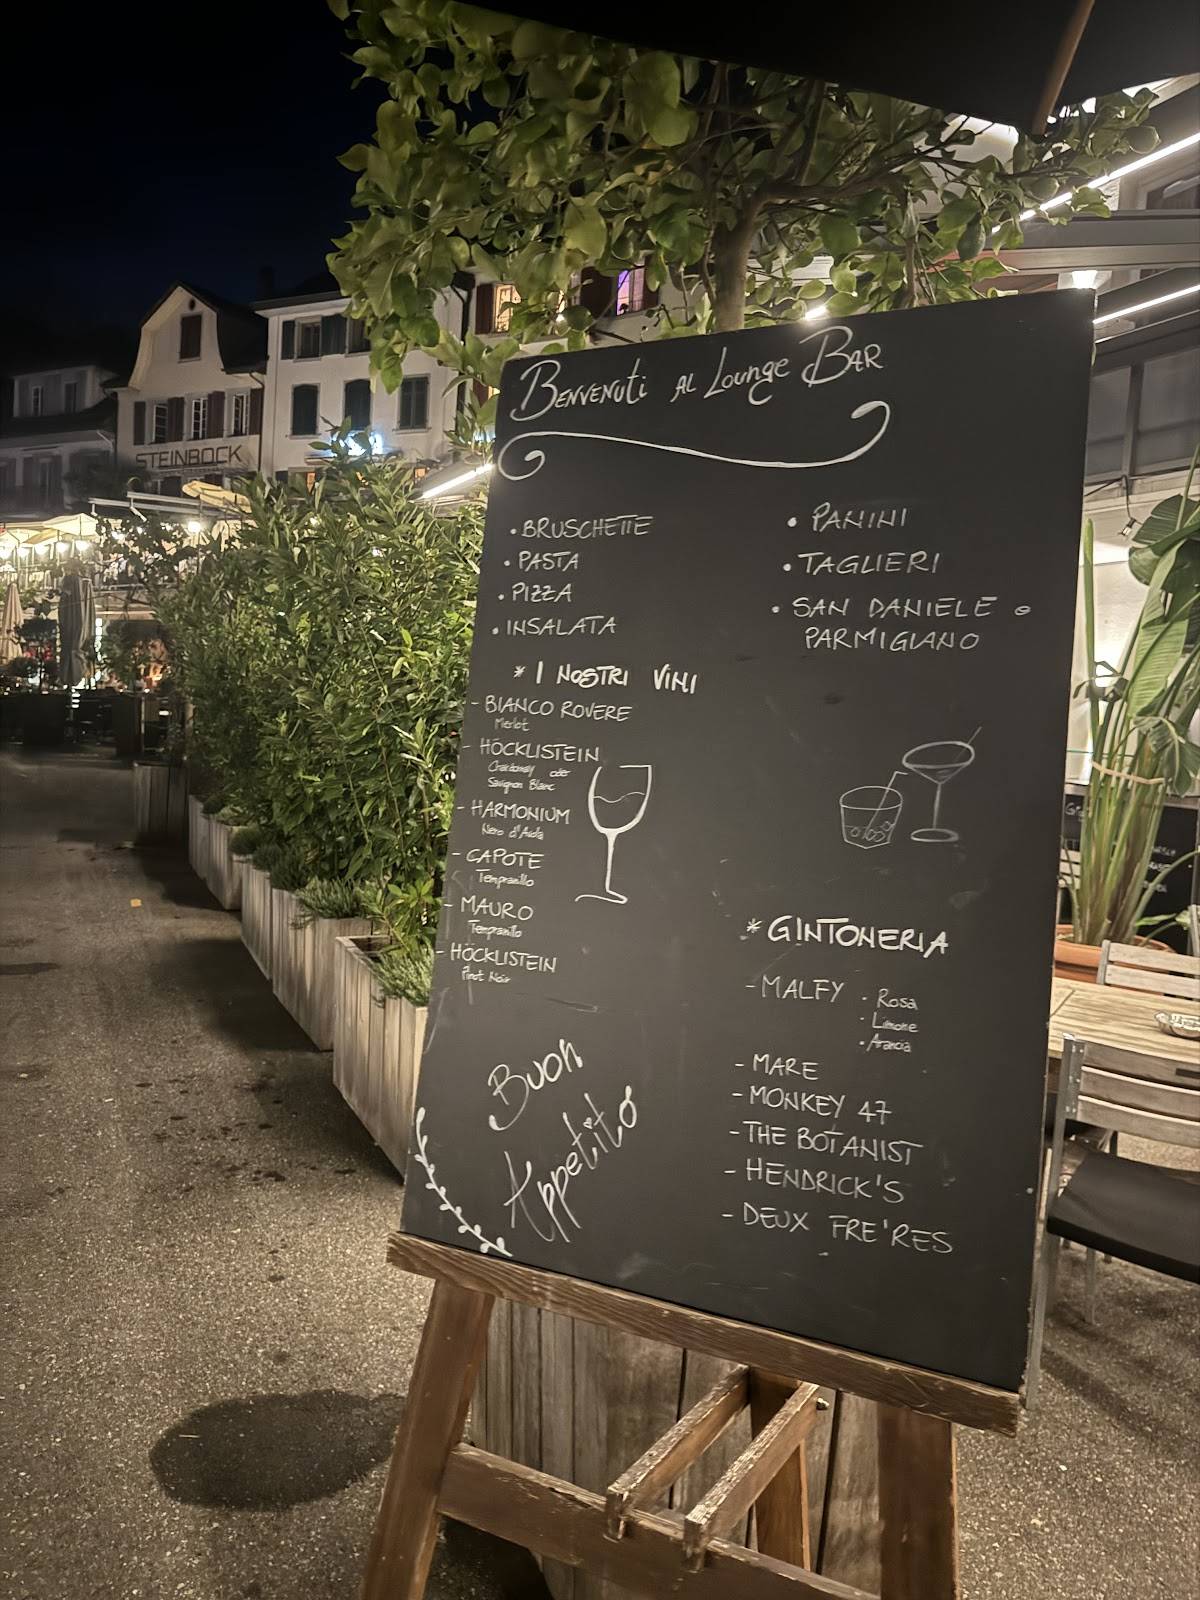 STEINBOCK
BENVENUTI AL Lounge BAR
• BRUSCHETTE
• PASTA
• PIZZA
• INSALATA
• PANINI
• TAGLIERI
• SAN DANIELE e
PARMIGIANO
* I NOSTRI VINI
- BIANCO ROVERE
Merlot
- HÖCKLISTEIN
Chardonnay oder
Sauvignon Blanc
- HARMONIUM
Nero d'Avola
- CAPOTE
Tempranillo
- MAURO
Tempranillo
- HÖCKLISTEIN
Pinot Noir
Buon
Appetito
* GINTONERIA
- MALFY • Rosa
• Limone
• Arancia
- MARE
- MONKEY 47
- THE BOTANIST
- HENDRICK'S
- DEUX FRE'RES